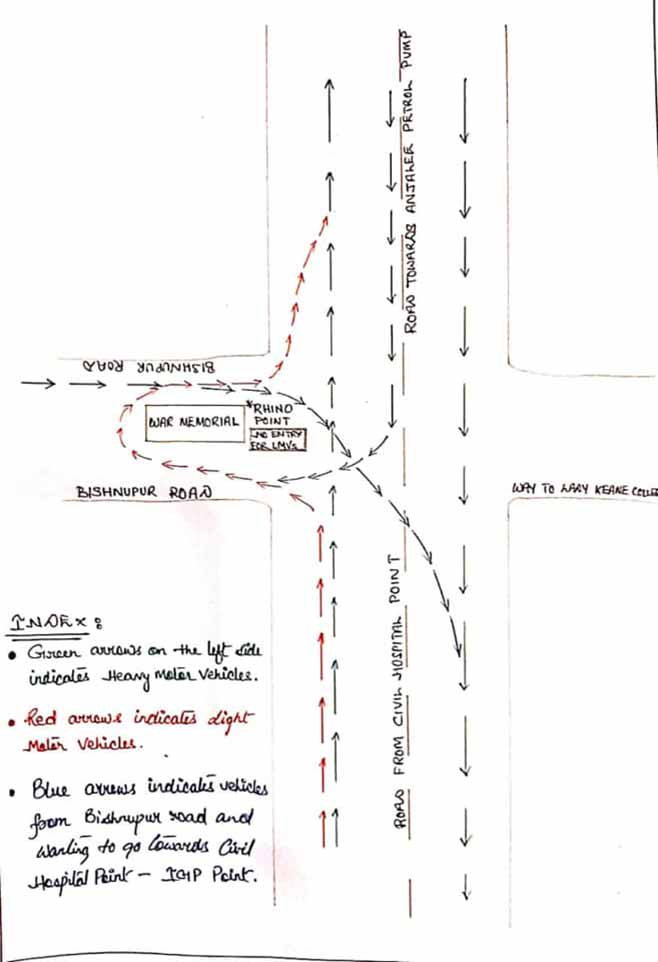 ROAD TOWARDS ANJALEE PETROL PUMP
BISHNUPUR ROAD
WAR MEMORIAL
*RHINO
POINT
NO ENTRY
FOR LMVs
BISHNUPUR ROAD
WAY TO LADY KEANE COLLE
ROAD FROM CIVIL HOSPITAL POINT
INDEX :
• Green arrows on the left side
indicates Heavy Motor Vehicles.
• Red arrows indicates Light
Motor Vehicles.
• Blue arrows indicates vehicles
from Bishnupur road and
wanting to go towards Civil
Hospital Point – IGP Point.